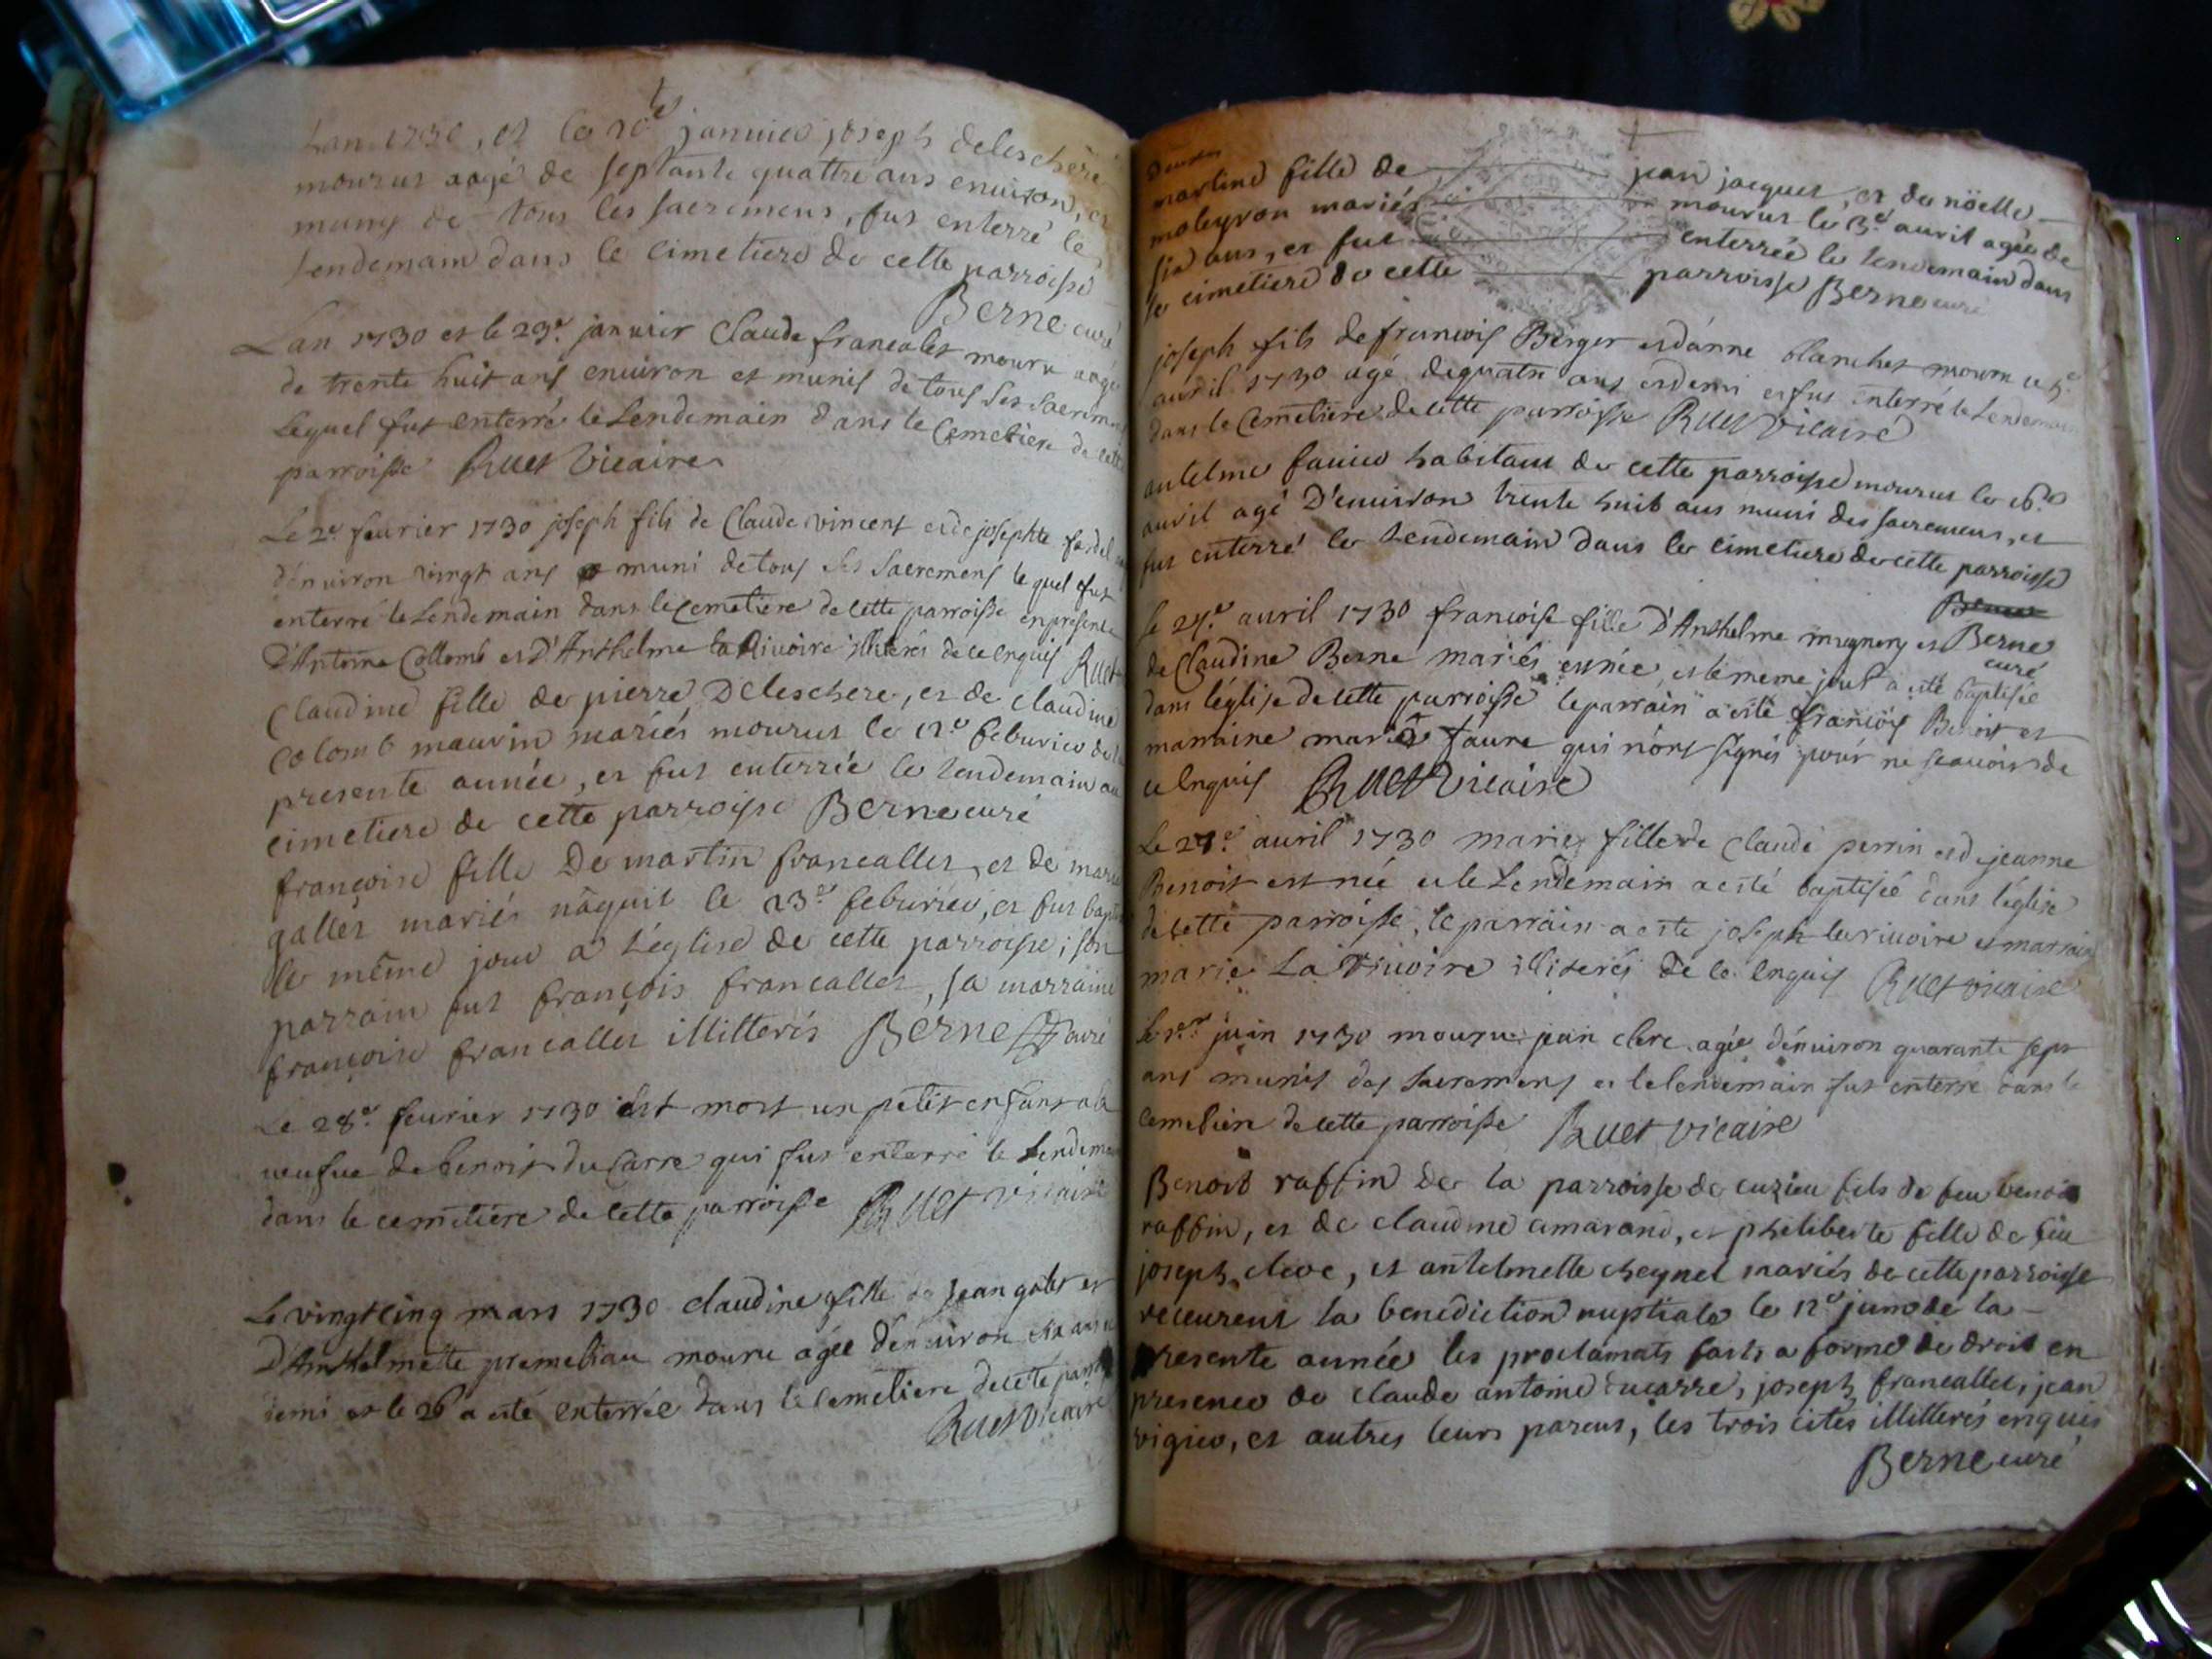 Lan 1730, et le 20e januier joseph deleschere
mourut aagé de septante quattre ans enuiron, et
muny de tous les sacremens, fut enterré le
lendemain dans le cimetiere de cette parroisse
Berne curé
Lan 1730 et le 23e januier Claude francalet mouru aagé
de trente huit ans enuiron et munis de tous ses sacremens
lequel fut enterré le Lendemain dans le Cemetiere de cette
parroisse Ruet Vicaire
Le 2e feurier 1730 joseph fils de Claude Vincent et de josephte
d'enuiron vingt ans muni de tous ses Sacremens lequel fut
enterré le Lendemain dans le Cemetiere de cette parroisse en presence
D'Antoine Collomb et D'Anthelme La Riuoire illiterés de ce enquis Ruet
Claudine fille de pierre Deleschere, et de claudine
colomb mauvin mariés mourut le 12e feburier de la
presente année, et fut enterrée le lendemain au
cimetiere de cette parroisse Berne curé
françoise fille De martin francallet, et de marie
gallet mariés nâquit le 23e feburier, et fut bapt
le même jour a L'église de cette parroisse; son
parrain fut françois francallet, sa marraine
françoise francallet illitterés Berne curé
Le 28e feurier 1730 est mort un petit enfant a la
ueufue de benoit du Carre qui fut enterré le Lendemain
dans le cemetiere de cette parroisse Ruet vicaire
Le vingt cinq mars 1730 claudine fille de Jean galet et
D'Anthelmette premelian mouru agée d'enuiron six ans et
demi et le 26 a esté enterrée dans le Cemetiere de cete parroisse
Ruet Vicaire
martine fille de jean jacquet, et de nöelle
moleyron mariés mourut le 3e auril agée de
six ans, et fut enterrée le lendemain dans
le cimetiere de cette parroisse Berne curé
joseph fils de francois Berger et d'anne blanchet mouru le 5e
auril 1730 agé de quatre ans et demi et fut enterré le Lendemain
dans le Cemetiere de cette parroisse Ruet Vicaire
antelme fauier habitant de cette parroisse mourut le 16e
auril agé D'enuiron trente huit ans muni des sacremens, et
fut enterré le Lendemain dans le cimetiere de cette parroisse
Berne
curé
Le 27e auril 1730 francoise fille D'Anthelme mugnery et
de Claudine Berne mariés est née, et le meme jour a esté baptisée
dans l'église de cette parroisse le parrain a esté francois Benoit et
marraine marie faure qui n'ont signés pour ne scauoir de
ce enquis Ruet Vicaire
Le 27e auril 1730 marie fille de Claude perrin et de jeanne
Benoit est née et le Lendemain a esté baptisée dans l'église
de cette parroisse, le parrain a esté joseph la riuoire et marraine
marie La Riuoire illiterés de ce enquis Ruet vicaire
Le 1er juin 1730 mouru jean clerc agée d'enuiron quarante sept
ans munis des sacremens et le lendemain fut enterré dans le
cemetiere de cette parroisse Ruet vicaire
Benoit raffin de la parroisse de cuzieu fils de feu benoit
raffin, et de claudine amarand, et philiberte fille de feu
joseph clerc, et antelmette cheynet mariés de cette parroisse
receurent la benediction nuptiale le 12e juin de la
presente année les proclamats faits a forme de droit en
presence de claude antoine ducarre, joseph francallet, jean
vigier, et autres leurs parens, les trois cites illitterés enquis
Berne curé